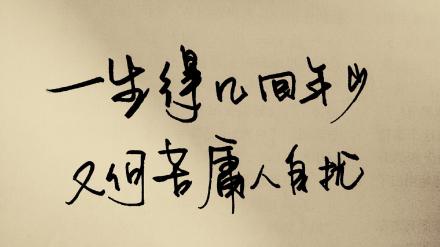 一生得几回年少
又何苦庸人自扰